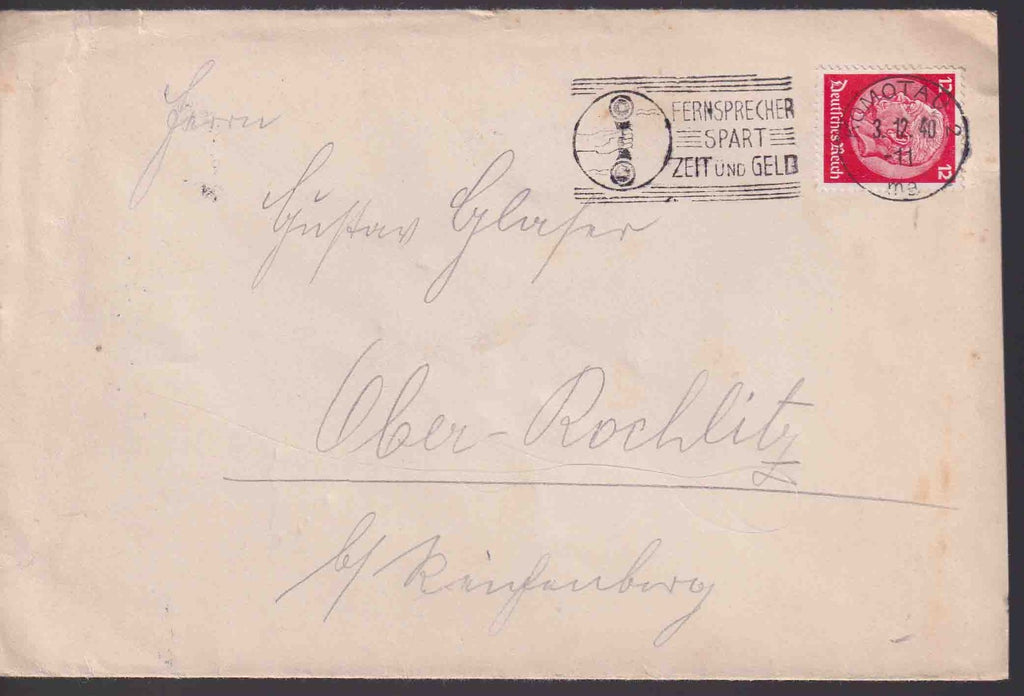 Herrn
Gustav Glaser
Ober-Rochlitz
b/ Reichenberg
FERNSPRECHER
SPART
ZEIT UND GELD
KOMOTAU 2
3.12.40
-11
ma
Deutsches Reich
12
12